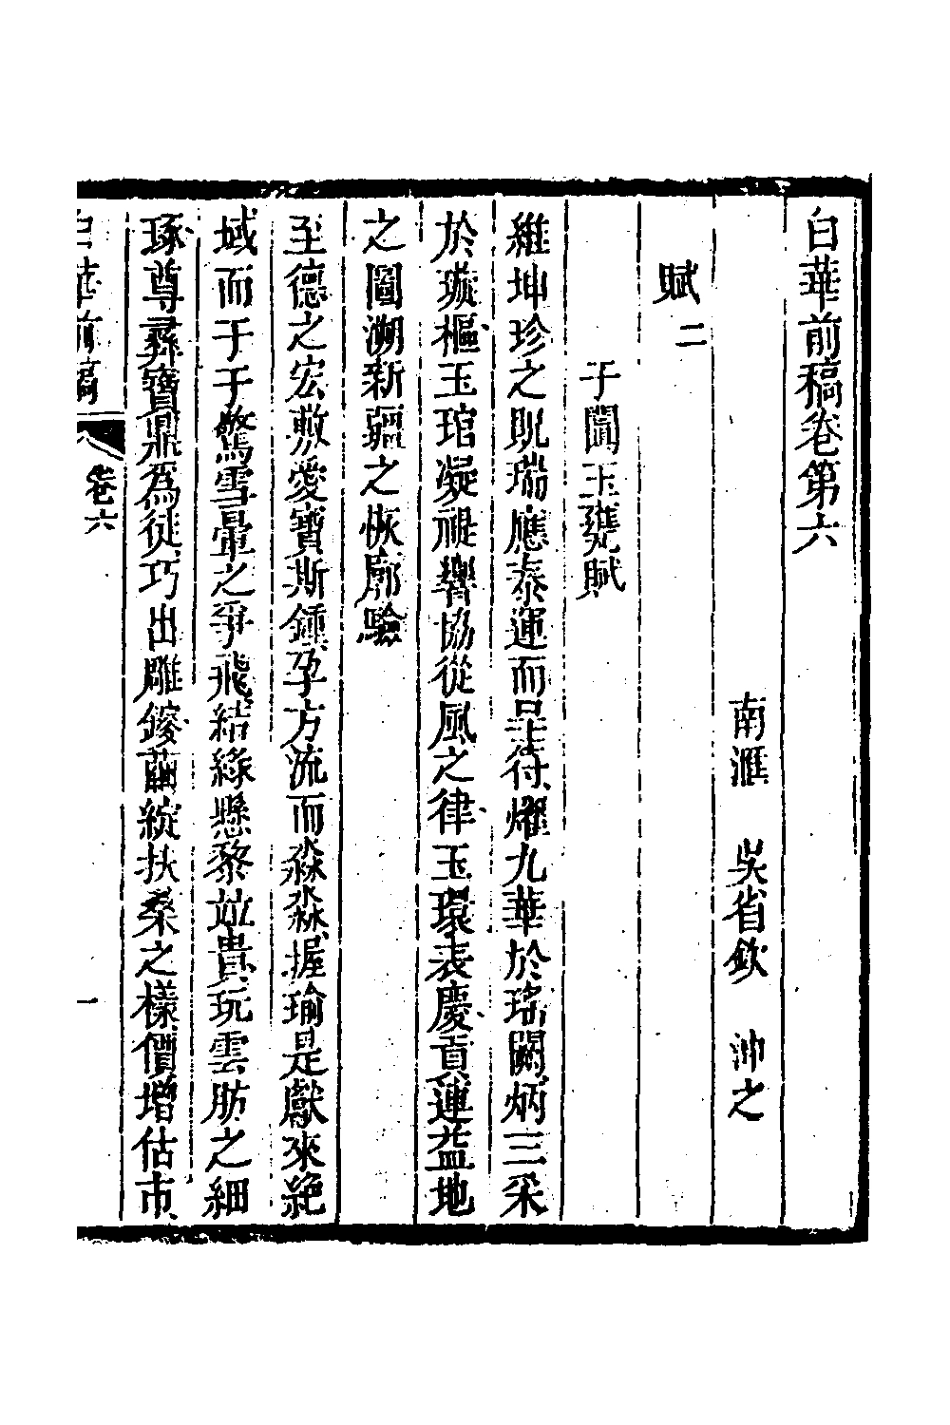 白華前稿卷第六
南滙　吳省欽　沖之
賦二
于闐玉甕賦
維坤珍之貺瑞應泰運而呈待燿九華於瑤闕炳三采
於璇樞玉琯凝禔響協從風之律玉環表慶貢連益地
之圖溯新疆之恢廓驗
至德之宏敷愛寶斯鍾孕方流而淼淼握瑜是獻來絕
域而于于驚雪暈之爭飛結綠懸黎竝貴玩雲肪之細
琢尊彝寶鼎爲徒巧出雕鎪藺綻扶桑之樣價增估市
白華前稿
卷六
一